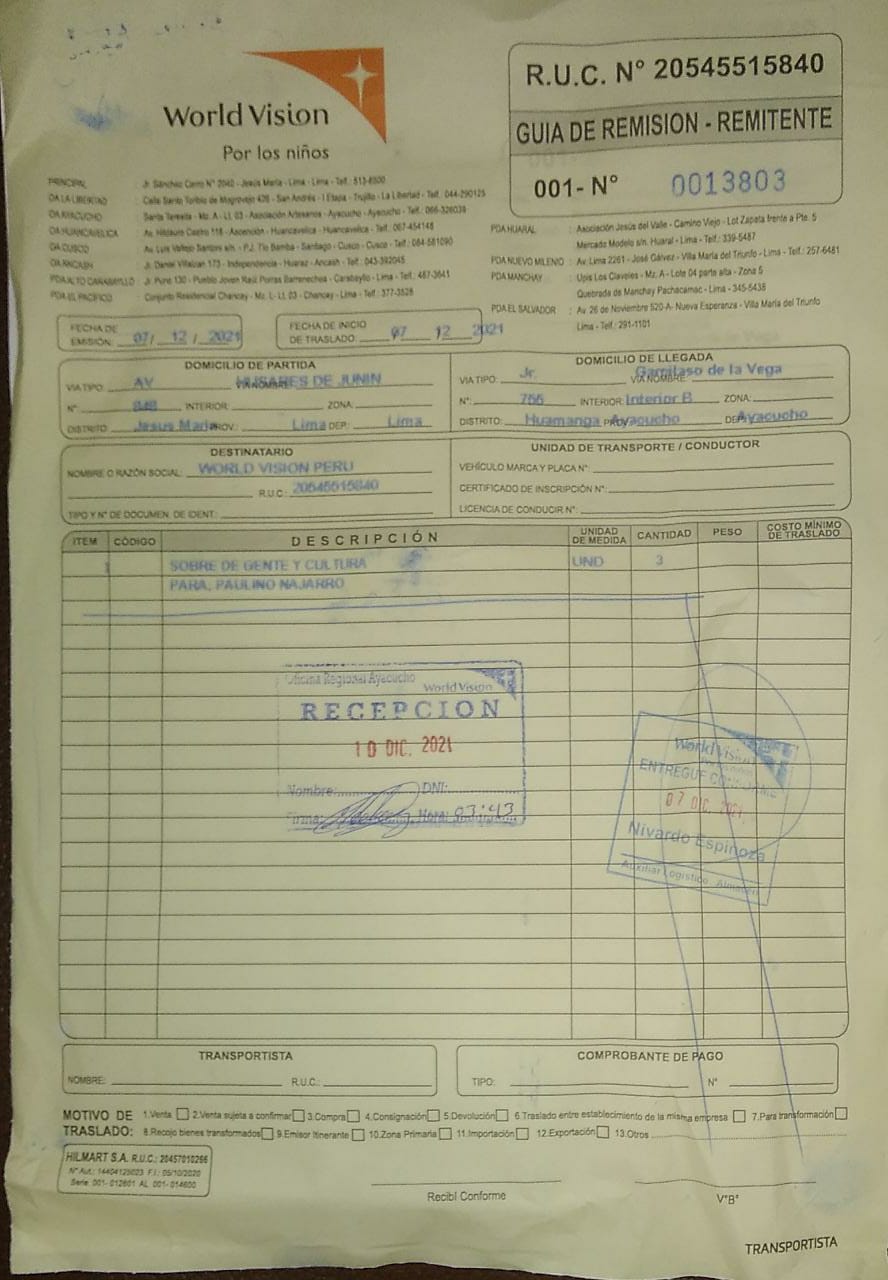 World Vision
Por los niños
R.U.C. N° 20545515840
GUIA DE REMISION - REMITENTE
001- N° 0013803
PRINCIPAL : Jr. Sánchez Cerro N° 2040 - Jesús María - Lima - Lima - Telf.: 513-6500
OA LA LIBERTAD : Calle Santo Toribio de Mogrovejo 428 - San Andrés - I Etapa - Trujillo - La Libertad - Telf. 044-290125
OA AYACUCHO : Santa Teresita - Mz. A - Lt. 03 - Asociación Artesanos - Ayacucho - Ayacucho - Telf.: 066-326039
OA HUANCAVELICA : Av. Hildauro Castro 118 - Ascención - Huancavelica - Huancavelica - Telf.: 067-454148
OA CUSCO : Av. Luis Vallejo Santoni s/n - P.J. Tío Bamba - Santiago - Cusco - Cusco - Telf.: 084-581090
OA ANCASH : Jr. Daniel Villaizan 173 - Independencia - Huaraz - Ancash - Telf.: 043-392045
PDA ALTO CARABAYLLO : Jr. Puno 130 - Pueblo Joven Raúl Porras Barrenechea - Carabayllo - Lima - Telf.: 487-3641
PDA EL PACÍFICO : Conjunto Residencial Chancay - Mz. L - Lt. 03 - Chancay - Lima - Telf.: 377-3528
PDA HUARAL : Asociación Jesús del Valle - Camino Viejo - Lot Zapata frente a Pte. 5
Mercado Modelo s/n. Huaral - Lima - Telf.: 339-5487
PDA NUEVO MILENIO : Av. Lima 2261 - José Gálvez - Villa María del Triunfo - Lima - Telf.: 257-6481
PDA MANCHAY : Upis Los Claveles - Mz. A - Lote 04 parte alta - Zona 5
Quebrada de Manchay Pachacamac - Lima - 345-5438
PDA EL SALVADOR : Av. 26 de Noviembre 520-A- Nueva Esperanza - Villa María del Triunfo
Lima - Telf.: 291-1101
FECHA DE
EMISIÓN: 07/ 12 / 2021
FECHA DE INICIO
DE TRASLADO: 07 12 2021
DOMICILIO DE PARTIDA
VIA TIPO: AV VIA NOMBRE: HUSARES DE JUNIN
N° INTERIOR: ZONA:
DISTRITO Jesus Maria PROV.: Lima DEP.: Lima
DOMICILIO DE LLEGADA
VIA TIPO: Jr. VIA NOMBRE: Garcilaso de la Vega
N°: 756 INTERIOR: Interior B ZONA:
DISTRITO: Huamanga PROV: Ayacucho DEP: Ayacucho
DESTINATARIO
NOMBRE O RAZÓN SOCIAL: WORLD VISION PERU
R.U.C.: 20545515840
TIPO Y N° DE DOCUMEN. DE IDENT.:
UNIDAD DE TRANSPORTE / CONDUCTOR
VEHÍCULO MARCA Y PLACA N°:
CERTIFICADO DE INSCRIPCIÓN N°:
LICENCIA DE CONDUCIR N°:
ITEM CÓDIGO DESCRIPCIÓN UNIDAD DE MEDIDA CANTIDAD PESO COSTO MÍNIMO DE TRASLADO
1 SOBRE DE GENTE Y CULTURA UND 3
PARA, PAULINO NAJARRO
Oficina Regional Ayacucho
World Vision
RECEPCION
10 DIC. 2021
Nombre: DNI:
Firma: Hora: 03:43
World Vision
ENTREGUE CONFORME
07 DIC. 2021
Nivardo Espinoza
Auxiliar Logístico Almacén
TRANSPORTISTA
NOMBRE: R.U.C.:
COMPROBANTE DE PAGO
TIPO: N°
MOTIVO DE TRASLADO: 1.Venta 2.Venta sujeta a confirmar 3.Compra 4.Consignación 5.Devolución 6.Traslado entre establecimiento de la misma empresa 7.Para transformación
8.Recojo bienes transformados 9.Emisor Itinerante 10.Zona Primaria 11.Importación 12.Exportación 13.Otros
HILMART S.A. R.U.C.: 20457010266
N° Aut.: 14404125023 F.I.: 05/10/2020
Serie 001- 012601 AL 001- 014600
Recibí Conforme
V°B°
TRANSPORTISTA